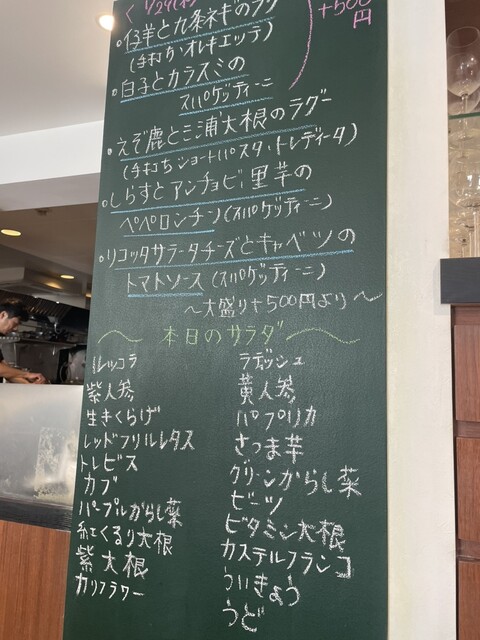 +500
円
・仔羊と九条ネギのラグー
(手打ちオレキエッテ)
・白子とカラスミの
スパゲッティーニ
・えぞ鹿と三浦大根のラグー
(手打ちショートパスタ、トレディータ)
・しらすとアンチョビ、里芋の
ペペロンチーノ(スパゲッティーニ)
・リコッタサラータチーズとキャベツの
トマトソース(スパゲッティーニ)
〜大盛り+500円より〜
〜本日のサラダ〜
ルッコラ
紫人参
生きくらげ
レッドフリルレタス
トレビス
カブ
パープルからし菜
紅くるり大根
紫大根
カリフラワー
ラディッシュ
黄人参
パプリカ
さつま芋
グリーンからし菜
ビーツ
ビタミン大根
カステルフランコ
ういきょう
うど